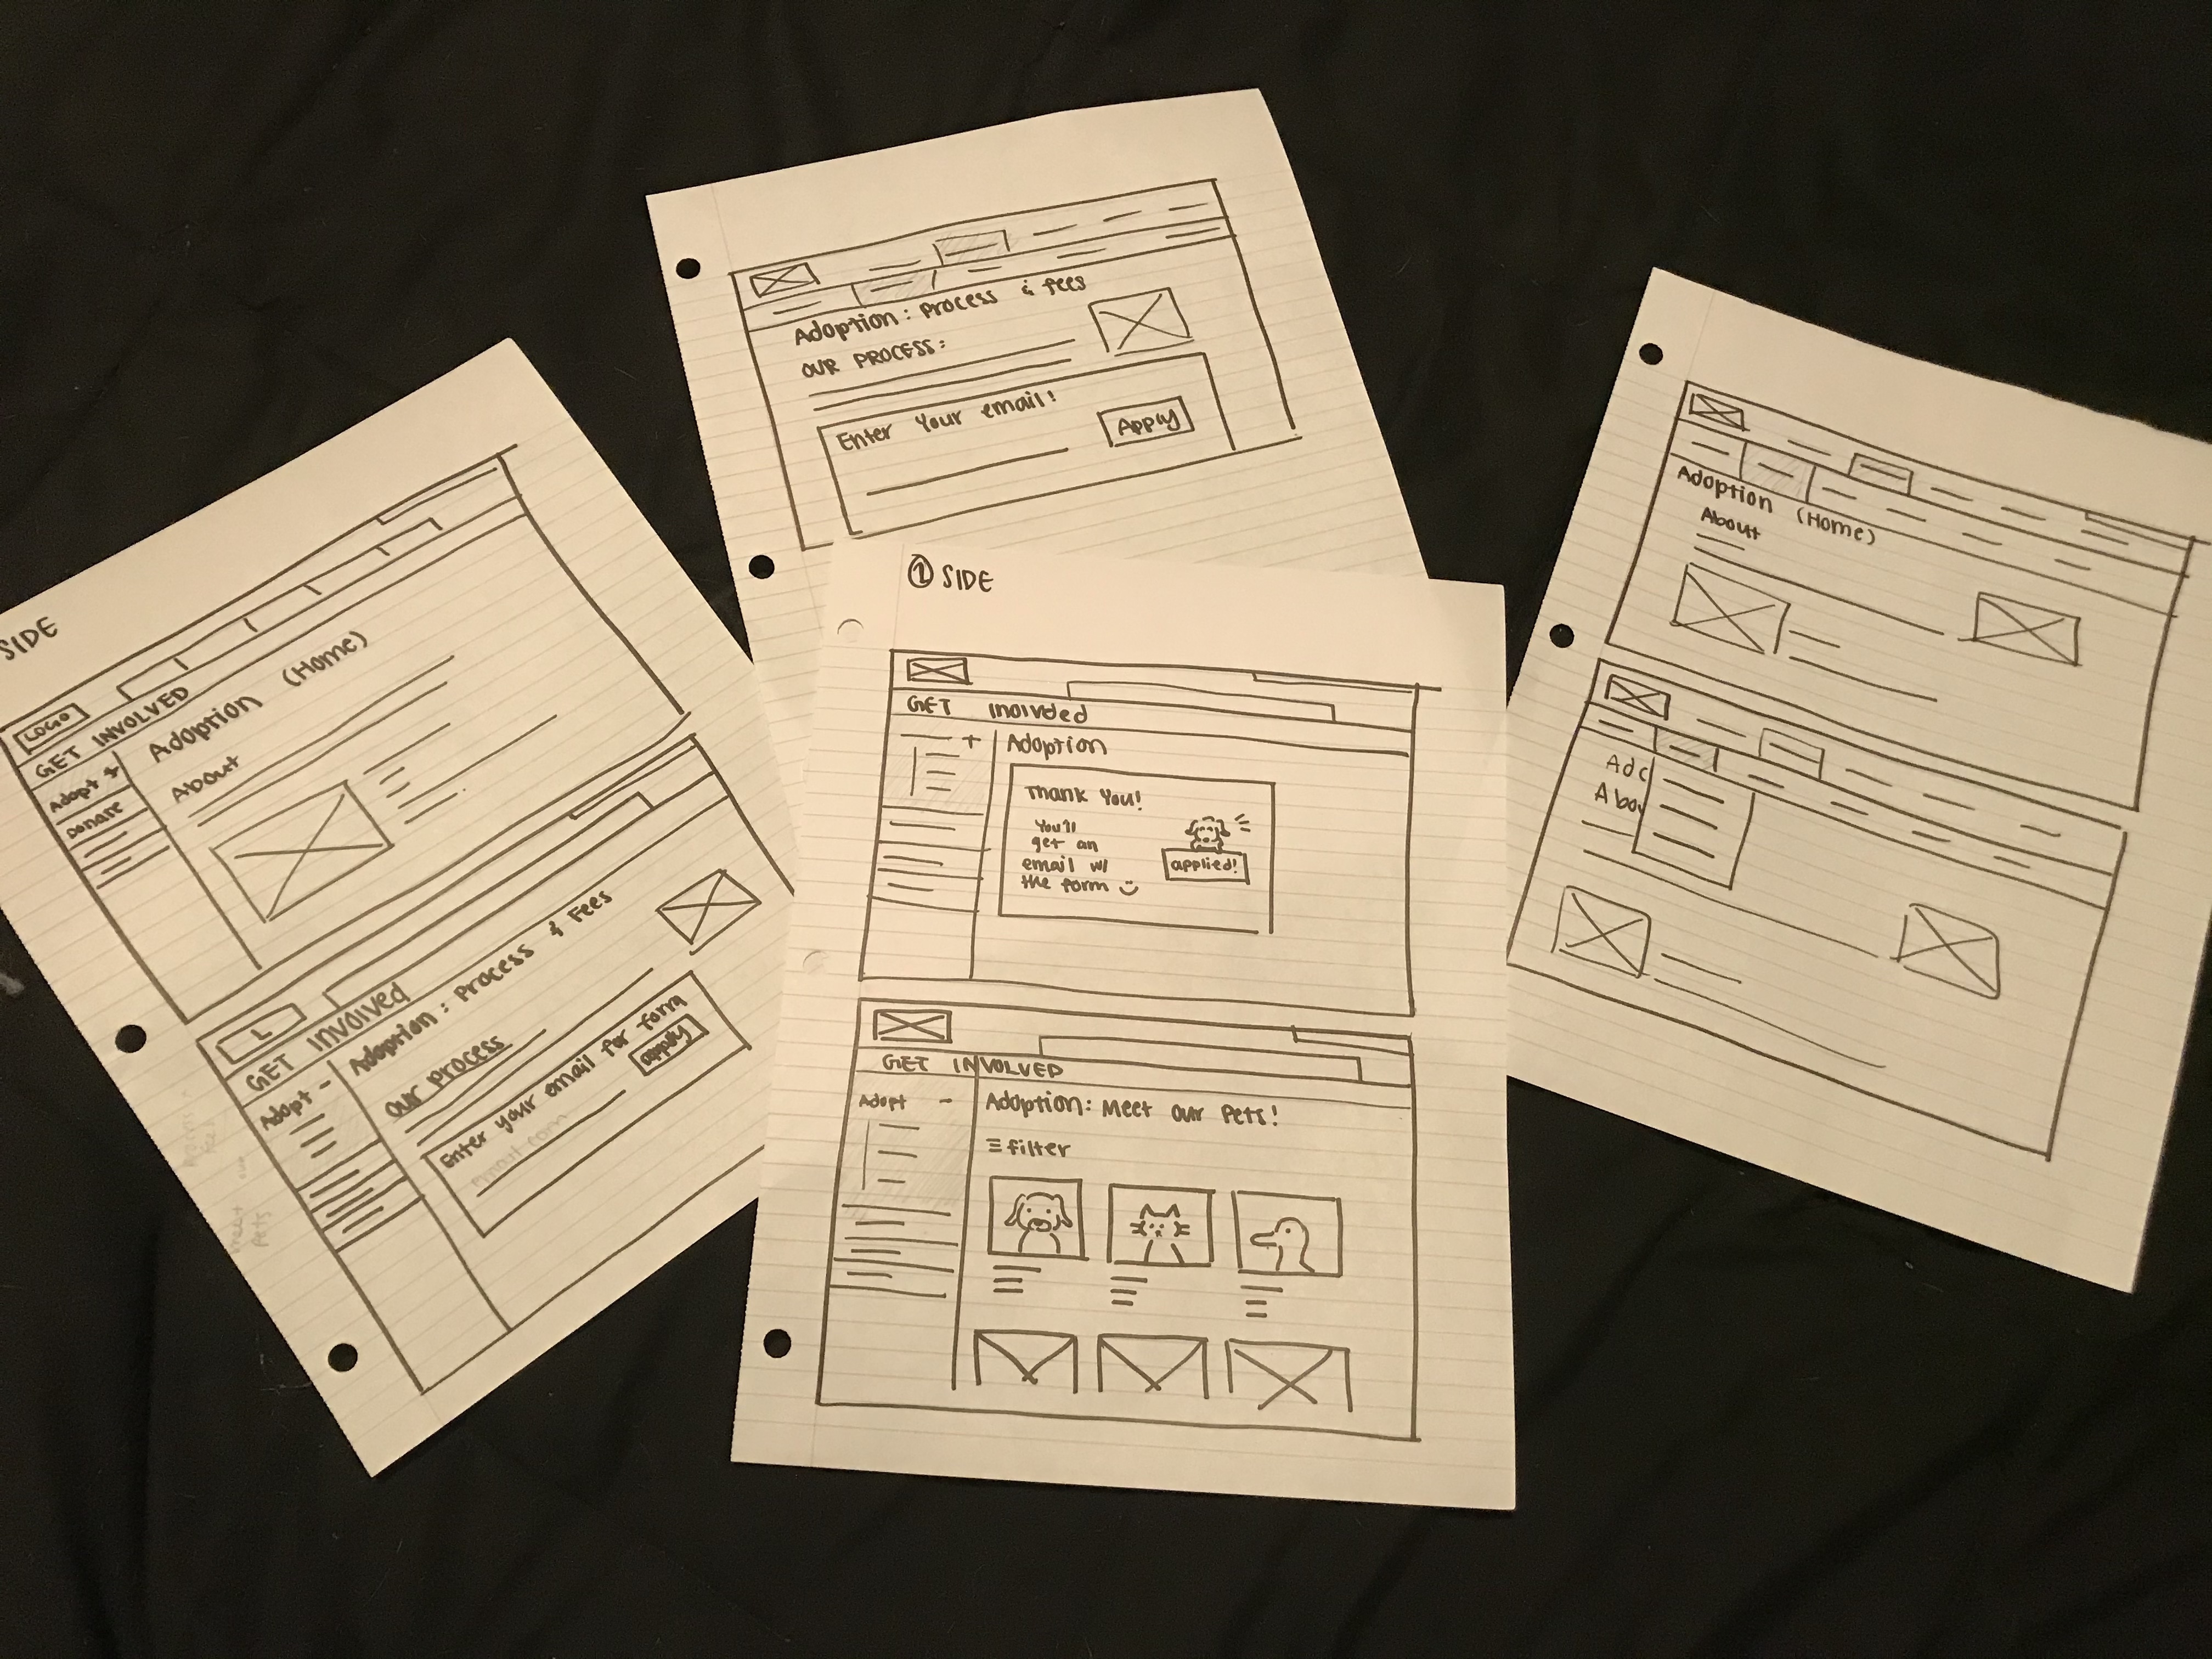 SIDE
LOGO
GET INVOLVED
Adopt +
Donate
Adoption (Home)
About
L
GET INVOLVED
Adopt -
Adoption: Process & Fees
OUR PROCESS
Enter your email for form
apply
email.com
meet our
pets
Adoption: Process & fees
OUR PROCESS:
Enter Your email!
Apply
① SIDE
GET INOLVDED
+
Adoption
Thank You!
You'll
get an
email w/
the form
applied!
GET INVOLVED
Adopt -
Adoption: Meet Our Pets!
filter
Adoption (Home)
About
Ado
Abou